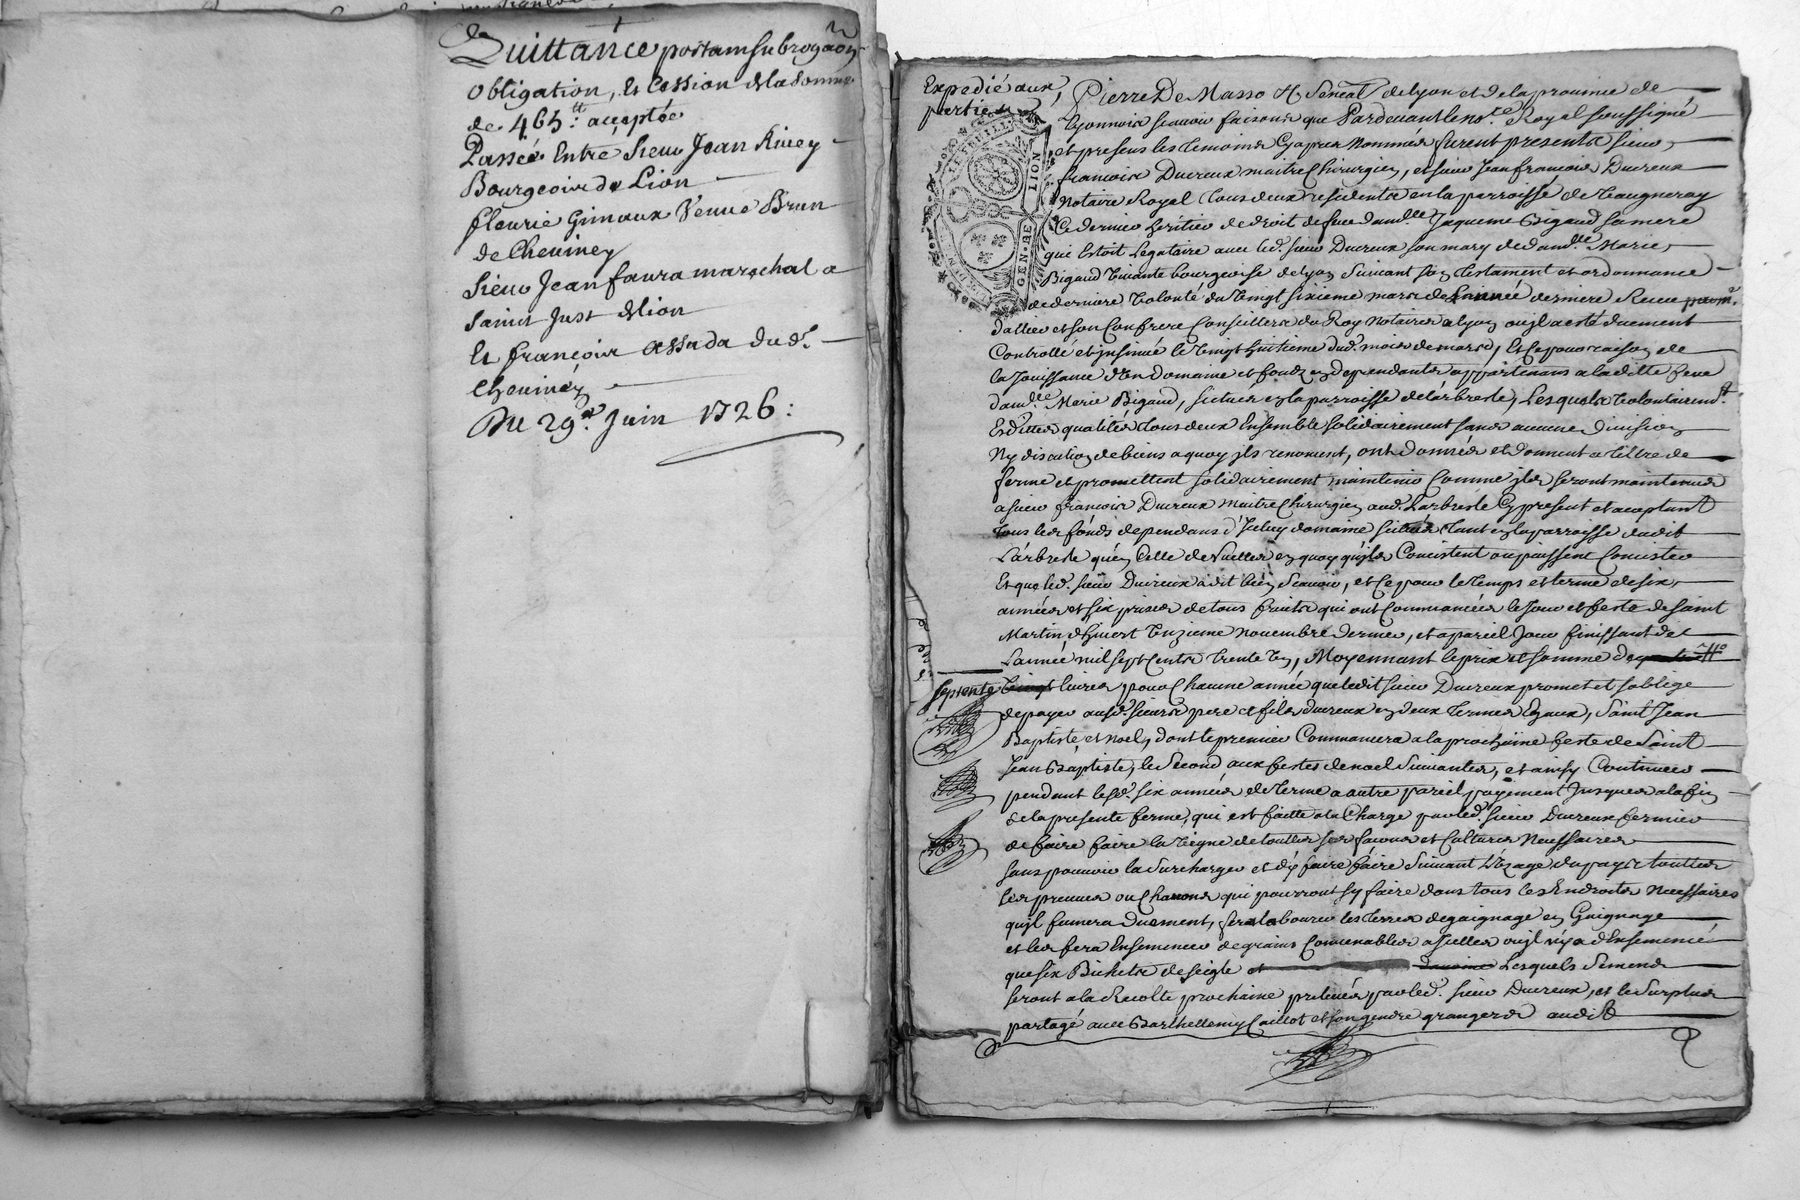 Quittance portant subrogaon
obligation, Et Cession de la somme
de 465ᵗᵗ: acceptée
Passée Entre Sieur Jean
Bourgeois de Lion
fleurie Gimaux Veuve Brun
de Cheviney
Sieur Jean faura mareschal a
saint Just de Lion
Et françois assada dud.
Cheviney
Du 29e. Juin 1726:
Expedié aux parties
Pierre De Masso Sénéal de Lyon et de la province de
Lyonnois scavoir faisons que Pardevant le nore. Royal soussigné
et presens les temoins Cy apres Nommés furent presents sieur
françois Ducreux maitre Chirurgien, et sieur Jean françois Ducreux
Notaire Royal tous deux residents en la parroisse de Vaugneray
Ce dernier heritier de droit de feue damlle Jaqueme Bigaud sa mere
qui Estoit Legataire avec led. sieur Ducreux son mary de damlle Marie
Bigaud Vivante bourgeoise de Lyon Suivant son testament et ordonnance
de derniere Volonté du Vingt sixieme mars de l'année derniere Receu
dallier et son Confrere Conseillers du Roy Notaires a Lyon ou il a esté duement
Controllé et insinué le Vingt huitieme dud. mois de mars, Et ce pour raison de
la Jouissance d'un Domaine et fonds en dependants appartenans a laditte feue
damlle Marie Bigaud, scitues en la parroisse de Larbresle, Lesquels Volontairemt
Esdittes qualités tous deux Ensemble solidairement sans aucune Division
Ny discution de biens a quoy ils renoncent, ont donnés et donnent a tiltre de
ferme et promettent solidairement maintenir Comme ils seront maintenus
a sieur françois Ducreux maitre Chirurgien aud. Larbresle Cy present et acceptant
tous les fonds dependans d'Iceluy domaine scitués tant en la parroisse dudit
Larbresle qu'en Celle de Nuelles en quoy qu'ils Consistent ou puissent Consister
Et que led. sieur Ducreux a dit bien scavoir, et Ce pour le temps et terme de six
années et six prises de tous fruits qui ont Commancées le Jour et feste de saint
Martin d'hivert Unzieme novembre dernier, et a pareil Jour finissant de
Lannée mil sept Cents trente Un, Moyennant le prix et somme de
septente Vingt livres pour Chacune année que ledit sieur Ducreux promet et s'oblige
de payer ausd. sieurs pere et fils Ducreux en deux termes Egaux, Saint Jean
Baptiste et Noel, dont le premier Commancera a la prochaine feste de Saint
Jean Baptiste, le Second aux festes de noel Suivantes, et ainsy Continuer
pendant lesd. six années de terme a autre pareil payement Jusques a la fin
de la presente ferme, qui est faitte a la Charge par led. sieur Ducreux fermier
de faire faire la Vigne de touttes ses façons et Cultures Necessaires
sans pouvoir la surcharger et d'y faire faire Suivant L'Uzage du pays touttes
les preuves ou Chanons qui pourront s'y faire dans tous les Endroits Necessaires
qu'il fumera duement, fera labourer les terres de gaignage en Gaignage
et les fera Ensemencer de grains Convenables a Icelles ou il n'y a d'Ensemencé
que six Bichets de seigle et davoine Lesquels Semends
seront a la Recolte prochaine prelevés par led. sieur Ducreux, et le Surplus
partagé avec Barthellemy Caillot et son gendre grangers audit